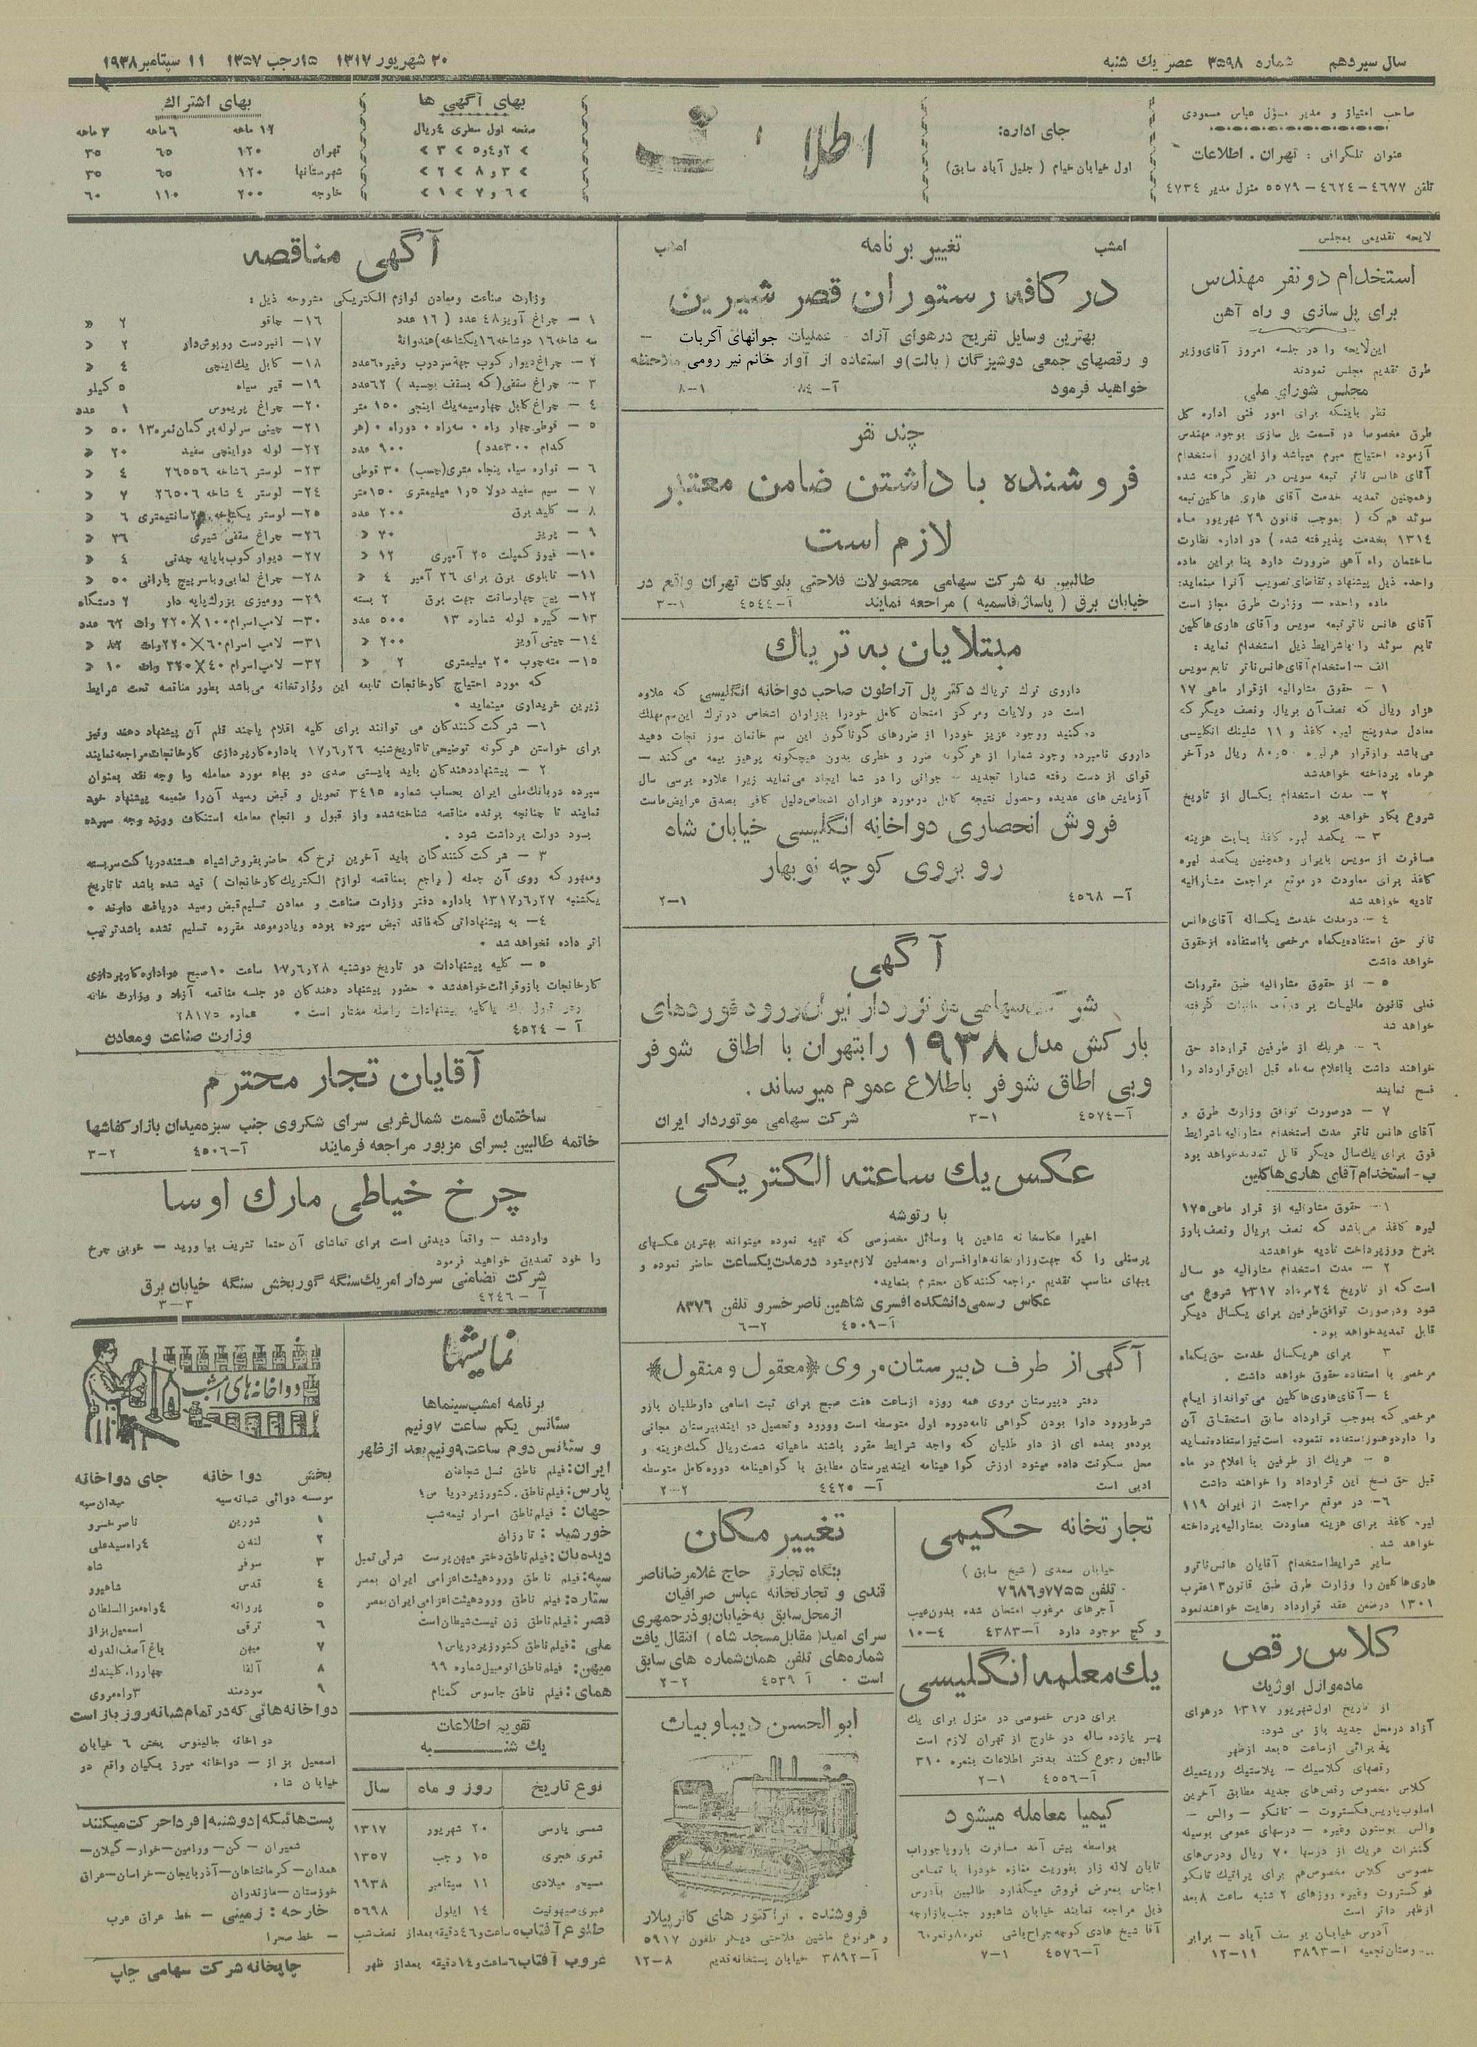 سال سیزدهم شماره ۳۵۹۸ عصر یك شنبه
۲۰ شهریور ۱۳۱۷ ۱۵ رجب ۱۳۵۷ ۱۱ سپتامبر ۱۹۳۸
صاحب امتیاز و مدیر مسؤل عباس مسعودی
عنوان تلگرافی : تهران . اطلاعات
تلفن ۴۶۷۷-۴۶۲۴-۵۵۷۹ منزل مدیر ۴۷۳۴
جای اداره:
اول خیابان خیام ( جلیل آباد سابق)
بهای آگهی ها
صفحه اول سطری ۴ ریال
بهای اشتراك
۱۲ ماهه ۶ ماهه ۳ ماهه
تهران ۱۲۰ ۶۵ ۳۵
شهرستانها ۱۲۰ ۶۵ ۳۵
خارجه ۲۰۰ ۱۱۰ ۶۰
لایحه تقدیمی بمجلس
استخدام دو نفر مهندس
برای پل سازی و راه آهن
این لایحه را در جلسه امروز آقای وزیر
طرق تقدیم مجلس نمودند
مجلس شورای ملی
نظر باینکه برای امور فنی اداره کل
طرق مخصوصا در قسمت پل سازی بوجود مهندس
آزموده احتیاج مبرم میباشد و از این رو استخدام
آقای هانس ناتر تبعه سویس در نظر گرفته شده
وهمچنین تمدید خدمت آقای هاری هاکلین تبعه
سوئد هم که ( بموجب قانون ۲۹ شهریور ماه
۱۳۱۴ بخدمت پذیرفته شده ) در اداره نظارت
ساختمان راه آهن ضرورت دارد بنا براین ماده
واحده ذیل پیشنهاد و تقاضای تصویب آنرا مینماید:
ماده واحده - وزارت طرق مجاز است
آقای هانس ناتر تبعه سویس و آقای هاری هاکلین
تابع سوئد را باشرایط ذیل استخدام نماید :
الف - استخدام آقای هانس ناتر تابع سویس
۱ - حقوق مشارالیه از قرار ماهی ۱۷
هزار ریال که نصف آن بریال ونصف دیگر که
معادل صد و پنج لیره کاغذ و ۱۱ شلینگ انگلیسی
هرماه پرداخته خواهد شد
۲ - مدت استخدام یکسال از تاریخ
شروع بکار خواهد بود
۳ - یکصد لیره کاغذ بابت هزینه
مسافرت از سویس بایران وهمچنین یکصد لیره
کاغذ برای معاودت در موقع مراجعت مشارالیه
تادیه خواهد شد
۴ - در مدت خدمت یکساله آقای هانس
ناتر حق استفاده یکماه مرخصی با استفاده از حقوق
خواهد داشت
۵ - از حقوق مشارالیه طبق مقررات
خواهد شد
۶ - هریك از طرفین قرارداد حق
خواهند داشت با اعلام سه ماه قبل این قرارداد را
فسخ نمایند
۷ - درصورت توافق وزارت طرق و
آقای هانس ناتر مدت استخدام مشارالیه باشرایط
فوق برای یك سال دیگر قابل تمدید خواهد بود
ب - استخدام آقای هاری هاکلین
۱ - حقوق مشارالیه از قرار ماهی ۱۷۵
لیره کاغذ می باشد که نصف بریال ونصف بارز
بنرخ روز پرداخت تادیه خواهد شد
۲ - مدت استخدام مشارالیه دو سال
است که از تاریخ ۲۴ مرداد ۱۳۱۷ شروع می
شود و درصورت توافق طرفین برای یکسال دیگر
قابل تمدید خواهد بود.
۳ برای هریکسال خدمت حق یکماه
مرخصی با استفاده حقوق خواهد داشت .
۴ - آقای هاری هاکلین می تواند از ایام
مرخصی که بموجب قرارداد سابق استحقاق آن
را دارد و هنوز استفاده ننموده است نیز استفاده نماید
۵ - هریك از طرفین با اعلام دو ماه
قبل حق فسخ این قرارداد را خواهند داشت
۶ - در موقع مراجعت از ایران ۱۱۹
لیره کاغذ برای هزینه معاودت بمشارالیه پرداخته
خواهد شد .
سایر شرایط استخدام آقایان هانس ناتر و
هاری هاکلین را وزارت طرق طبق قانون ۱۳ عقرب
۱۳۰۱ درضمن عقد قرارداد رعایت خواهند نمود
کلاس رقص
مادموازل اوژیك
از تاریخ اول شهریور ۱۳۱۷ درهوای
آزاد درمحل جدید باز می شود:
پذیرائی از ساعت ۵ بعد از ظهر
رقصهای کلاسیك - پلاستیك وریتمیك
کلاس مخصوص رقص های جدید مطابق آخرین
اسلوب پاریس فکستروت - تانگو - والس -
والس بوستون وغیره - درسهای عمومی بوسیله
کنترات هریك از درسها ۷۰ ریال و درس های
خصوصی کلاس مخصوص هم برای پراتیك تانگو
فوکستروت وغیره روزهای ۲ شنبه ساعت ۸ بعد
از ظهر دائر است
آدرس خیابان یوسف آباد - برابر
آ-۳۸۹۳ ۱۱-۱۲
امشب تغییر برنامه امشب
در کافه رستوران قصر شیرین
بهترین وسایل تفریح درهوای آزاد - عملیات جوانهای آکربات -
و رقصهای جمعی دوشیزگان (بالت) و استفاده از آواز خانم نیر رومی ملاحظه
خواهید فرمود آ- ۸۴ ۱-۸
چند نفر
فروشنده با داشتن ضامن معتبر
لازم است
طالبین به شرکت سهامی محصولات فلاحتی بلوکات تهران واقع در
خیابان برق ( پاساژ قاسمیه ) مراجعه نمایند آ-۴۵۴۴ ۱-۳
مبتلایان به تریاك
داروی ترك تریاك دکتر پل آراطون صاحب دواخانه انگلیسی که علاوه
است در ولایات ومرکز امتحان کامل خودرا بهزاران اشخاص درترك این سم مهلك
داروی نامبرده وجود شمارا از هرگونه ضرر و خطری بدون هیچگونه پرهیز بیمه می کند -
قوای از دست رفته شمارا تجدید - جوانی را در شما ایجاد می نماید زیرا علاوه برسی سال
آزمایش های عدیده وحصول نتیجه کامل درمورد هزاران اشخاص دلیل کافی بصدق عرایض ماست
فروش انحصاری دواخانه انگلیسی خیابان شاه
روبروی کوچه نوبهار
آ- ۴۵۶۸ ۱-۲
آگهی
بارکش مدل ۱۹۳۸ رابتهران با اطاق شوفر
وبی اطاق شوفر باطلاع عموم میرساند .
آ-۴۵۷۴ ۱-۳ شرکت سهامی موتوردار ایران
عکس یك ساعته الکتریکی
با رتوشه
اخیرا عکاسخانه شاهین با وسائل مخصوصی که تهیه نموده میتواند بهترین عکسهای
پرسنلی را که جهت وزارتخانه ها و افسران و محصلین لازم میشود درمدت یکساعت حاضر نموده و
ببهای مناسب تقدیم مراجعه کنندگان محترم بنماید.
عکاس رسمی دانشکده افسری شاهین ناصرخسرو تلفن ۸۳۷۶
آ-۴۵۰۹ ۲-۶
آگهی از طرف دبیرستان مروی «معقول و منقول»
دفتر دبیرستان مروی همه روزه از ساعت هفت صبح برای ثبت اسامی داوطلبان بازو
شرط ورود دارا بودن گواهی نامه دوره اول متوسطه است و ورود و تحصیل در این دبیرستان مجانی
بوده و بعده ای از داو طلبان که واجد شرایط مقرر باشند ماهیانه شصت ریال کمك هزینه و
محل سکونت داده میشود ارزش گواهینامه این دبیرستان مطابق با گواهینامه دوره کامل متوسطه
ادبی است آ- ۴۴۲۵ ۲-۲
تجارتخانه حکیمی
خیابان سعدی ( شیخ سابق )
تلفن ۷۷۵۵ و ۷۶۸۶
آجرهای مرغوب امتحان شده بدون عیب
و گچ موجود دارد آ-۴۳۸۳ ۴-۱۰
یك معلمه انگلیسی
برای درس خصوصی در منزل برای یك
پسر یازده ساله در خارج از تهران لازم است
طالبین رجوع کنند بدفتر اطلاعات بنمره ۳۱۰
آ-۴۵۵۶ ۱-۲
کیمیا معامله میشود
بواسطه پیش آمد مسافرت باروپا جوراب
تابان لاله زار بفوریت مغازه خودرا با تمامی
اجناس بمعرض فروش میگذارد طالبین بآدرس
ذیل مراجعه نمایند خیابان شاهپور جنب بازارچه
آ-۴۵۷۶ ۱-۷
تغییر مکان
بنگاه تجارتی حاج غلامرضا ناصر
قندی و تجارتخانه عباس صرافیان
از محل سابق به خیابان بوذرجمهری
سرای امید (مقابل مسجد شاه ) انتقال یافت
شماره های تلفن همان شماره های سابق
است . آ ۴۵۳۹ ۲-۲
ابوالحسن دیبا و بیات
فروشنده . تراکتور های کاترپیلار
و هر نوع ماشین فلاحتی دیگر تلفون ۵۹۱۷
آ-۳۸۹۲ خیابان پستخانه قدیم ۸-۱۲
آگهی مناقصه
وزارت صناعت ومعادن لوازم الکتریکی مشروحه ذیل :
۱ - چراغ آویز ۴۸ عدد ( ۱۶ عدد
سه شاخه ۱۶ دوشاخه ۱۶ یکشاخه) هندوانه
۲ - چراغ دیوار کوب جهة سردرب وغیره ۶۰ عدد
۳ - چراغ سقفی (که بسقف بچسبد ) ۶۲ عدد
۴ - چراغ کابل چهار سیمه یك اینچی ۱۵۰ متر
۵ - قوطی چهار راه . سه راه . دوراه . (هر
کدام ۳۰۰ عدد ) ۹۰۰ عدد
۶ - نواره سیاه پنجاه متری (چسب) ۳۰ قوطی
۷ - سیم سفید دولا ۱٫۵ میلیمتری ۱۵۰ متر
۸ - کلید برق ۲۰۰ عدد
۹ - پریز ۷۰ «
۱۰ - فیوز کمپلت ۲۵ آمپری ۱۲ «
۱۱ - تابلوی برق برای ۲۶ آمپر ۴ «
۱۲ - پیچ چهارسانت جهت برق ۲ بسته
۱۳ - گیره لوله شماره ۱۳ ۵۰۰ عدد
۱۴ - چینی آویز ۲۰۰ «
۱۵ - مته چوب ۲۰ میلیمتری ۲ «
۱۶ - چاقو ۲ «
۱۷ - انبردست روپوش دار ۲ «
۱۸ - کابل یك اینچی ۴ «
۱۹ - قیر سیاه ۵ کیلو
۲۰ - چراغ پریموس ۱ عدد
۲۱ - چینی سر لوله برگمان نمره ۱۳ ۵۰ «
۲۲ - لوله دواینچی سفید ۲۰ «
۲۳ - لوستر ۶ شاخه ۲۶۵۵۶ ۴ «
۲۴ - لوستر ۴ شاخه ۲۶۵۰۶ ۷ «
۲۶ - چراغ سقفی شیری ۳۶ «
۲۷ - دیوار کوب باپایه چدنی ۴ «
۲۸ - چراغ لعابی وباسرپیچ بارانی ۵۰ «
۲۹ - رومیزی بزرك پایه دار ۲ دستگاه
۳۰ - لامپ اسرام ۱۰۰×۲۲۰ وات ۶۲ عدد
۳۱ - لامپ اسرام ۶۰×۲۲۰ وات
۳۲ - لامپ اسرام ۴۰×۲۲۰ وات ۱۰ «
که مورد احتیاج کارخانجات تابعه این وزارتخانه می باشد بطور مناقصه تحت شرایط
زیرین خریداری مینماید .
۱ - شرکت کنندگان می توانند برای کلیه اقلام یاچند قلم آن پیشنهاد دهند ونیز
برای خواستن هرگونه توضیحی تا تاریخ شنبه ۱۷٫۶٫۲۶ باداره کارپردازی کارخانجات مراجعه نمایند
۲ - پیشنهاد دهندگان باید بایستی صدی دو بهاء مورد معامله را وجه نقد بعنوان
سپرده در بانك ملی ایران بحساب شماره ۳۴۱۵ تحویل و قبض رسید آن را ضمیمه پیشنهاد خود
نمایند تا چنانچه برنده مناقصه شناخته شده واز قبول و انجام معامله استنکاف ورزد وجه سپرده
بسود دولت برداشت شود .
۳ - شرکت کنندگان باید آخرین نرخ که حاضر بفروش اشیاء هستند در پاکت سربسته
وممهور که روی آن جمله ( راجع بمناقصه لوازم الکتریك کارخانجات ) قید شده باشد تا تاریخ
یکشنبه ۱۳۱۷٫۶٫۲۷ باداره دفتر وزارت صناعت و معادن تسلیم قبض رسید دریافت دارند .
۴ - به پیشنهاداتی که فاقد قبض سپرده بوده ویادرموعد مقرره تسلیم نشده باشد ترتیب
اثر داده نخواهد شد .
۵ - کلیه پیشنهادات در تاریخ دوشنبه ۱۷٫۶٫۲۸ ساعت ۱۰ صبح در اداره کارپردازی
کارخانجات باز و قرائت خواهد شد . حضور پیشنهاد دهندگان در جلسه مناقصه آزاد و وزارت خانه
شماره ۲۸۱۷۵
آ - ۴۵۲۴ وزارت صناعت ومعادن
آقایان تجار محترم
ساختمان قسمت شمال غربی سرای شکروی جنب سبزه میدان بازار کفاشها
خاتمه طالبین بسرای مزبور مراجعه فرمایند آ-۴۵۰۶ ۲-۳
چرخ خیاطی مارك اوسا
وارد شد - واقعا دیدنی است برای تماشای آن حتما تشریف بیاورید - خوبی چرخ
را خود تصدیق خواهید فرمود
شرکت تضامنی سردار امریك سنگه گوربخش سنگه خیابان برق
آ-۴۲۴۶ ۳-۳
نمایشها
برنامه امشب سینماها
سئانس یکم ساعت ۷ ونیم
و سئانس دوم ساعت ۹ ونیم بعد از ظهر
ایران: فیلم ناطق نسل شجاعان
پارس: فیلم ناطق کشور زیر دریا س۱
جهان: فیلم ناطق اسرار نیمه شب
خورشید : تارزان
دیده بان: فیلم ناطق دختر میهن پرست شرلی تمپل
سپه: فیلم ناطق ورود هیئت اعزامی ایران بمصر
ستاره: فیلم ناطق ورود هیئت اعزامی ایران بمصر
قصر: فیلم ناطق زن نیست شیطان است
ملی: فیلم ناطق کشور زیر دریا س۱
میهن: فیلم ناطق اتومبیل شماره ۹۹
همای: فیلم ناطق جاسوس گمنام
تقویم اطلاعات
یك شنبه
نوع تاریخ روز و ماه سال
شمسی پارسی ۲۰ شهریور ۱۳۱۷
قمری هجری ۱۵ رجب ۱۳۵۷
مسیحی میلادی ۱۱ سپتامبر ۱۹۳۸
عبری صیهونیت ۱۴ ایلول ۵۶۹۸
طلوع آفتاب ۵ ساعت و ۴۶ دقیقه بعد از نصف شب
غروب آفتاب ۶ ساعت و ۱۴ دقیقه بعد از ظهر
دواخانه های امشب
بخش دوا خانه جای دواخانه
موسسه دوائی شبانه سپه میدان سپه
۱ شورین ناصر خسرو
۲ لندن ۴ راه سید علی
۳ سوفر شاه
۴ قدس شاهپور
۵ پروانه ۴ راه معز السلطان
۶ ترقی اسمعیل بزاز
۷ میهن باغ آصف الدوله
۸ آلفا چهار راه کلیندك
۹ سودمند ۳ راه مروی
دواخانه هائی که در تمام شبانه روز باز است
دواخانه جالینوس بخش ۶ خیابان
اسمعیل بزاز - دواخانه میرزیکیان واقع در
خیابان شاه
پست هائیکه [دوشنبه] فردا حرکت میکنند
شمیران - کن - ورامین - خوار - گیلان -
همدان - کرمانشاهان - آذربایجان - خراسان - عراق
خوزستان - مازندران
خارجه : زمینی - خط عراق عرب
- خط صحرا
چاپخانه شرکت سهامی چاپ